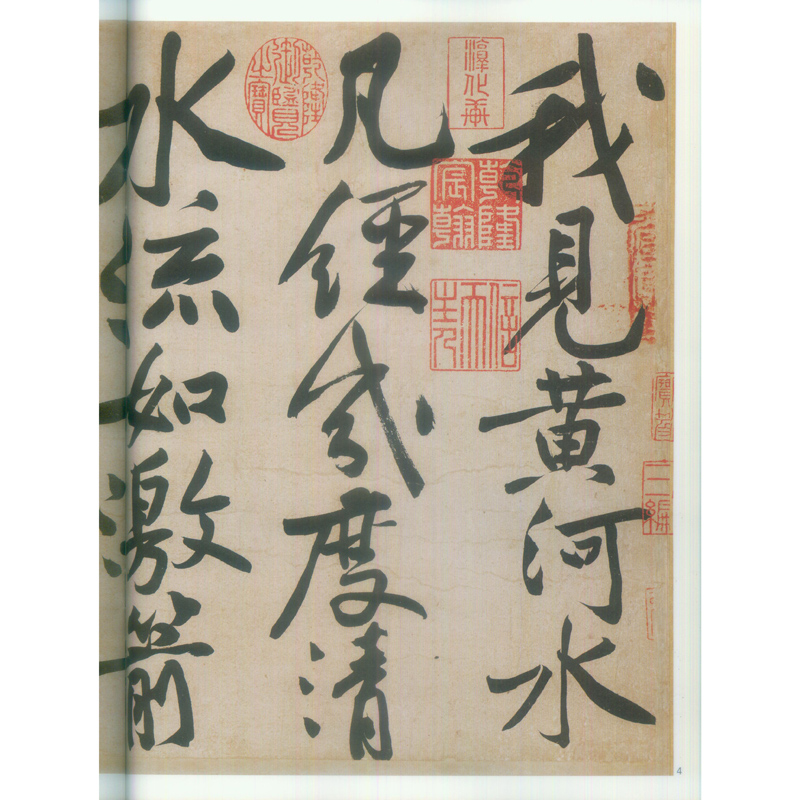 我見黃河水
淳化軒
乾隆宸翰
信天主人
凡經幾度清
乾隆御覽之寶
水流如激箭
4